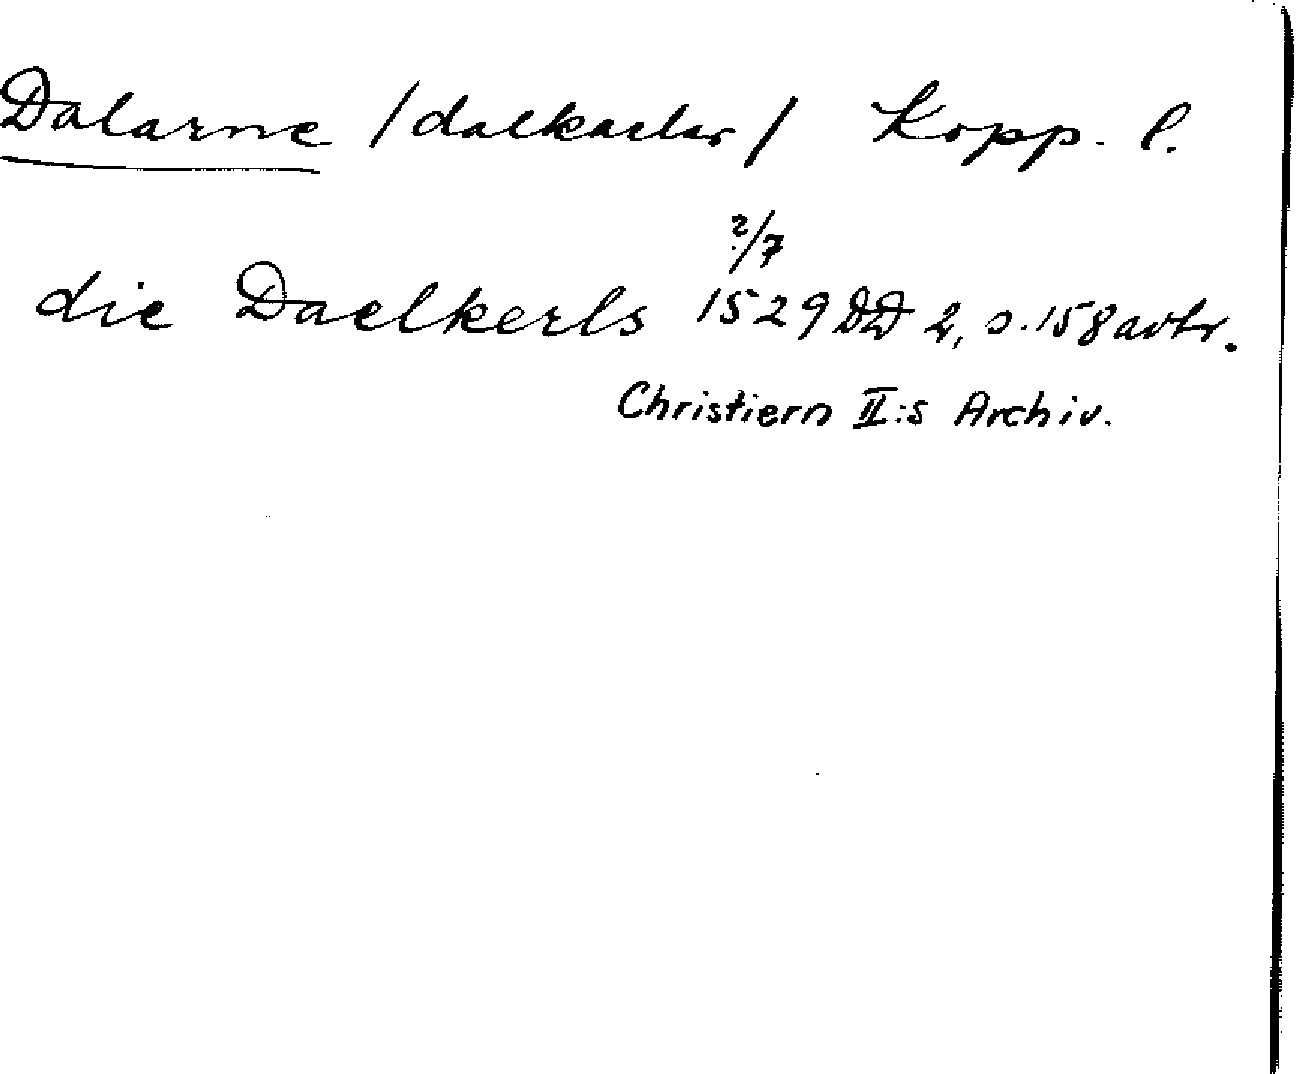 Dalarne /dalkarlar/ Kopp. l.
2/7
die Daelkerls 1529 DD 2, s. 158 avtr.
Christiern II:s Archiv.